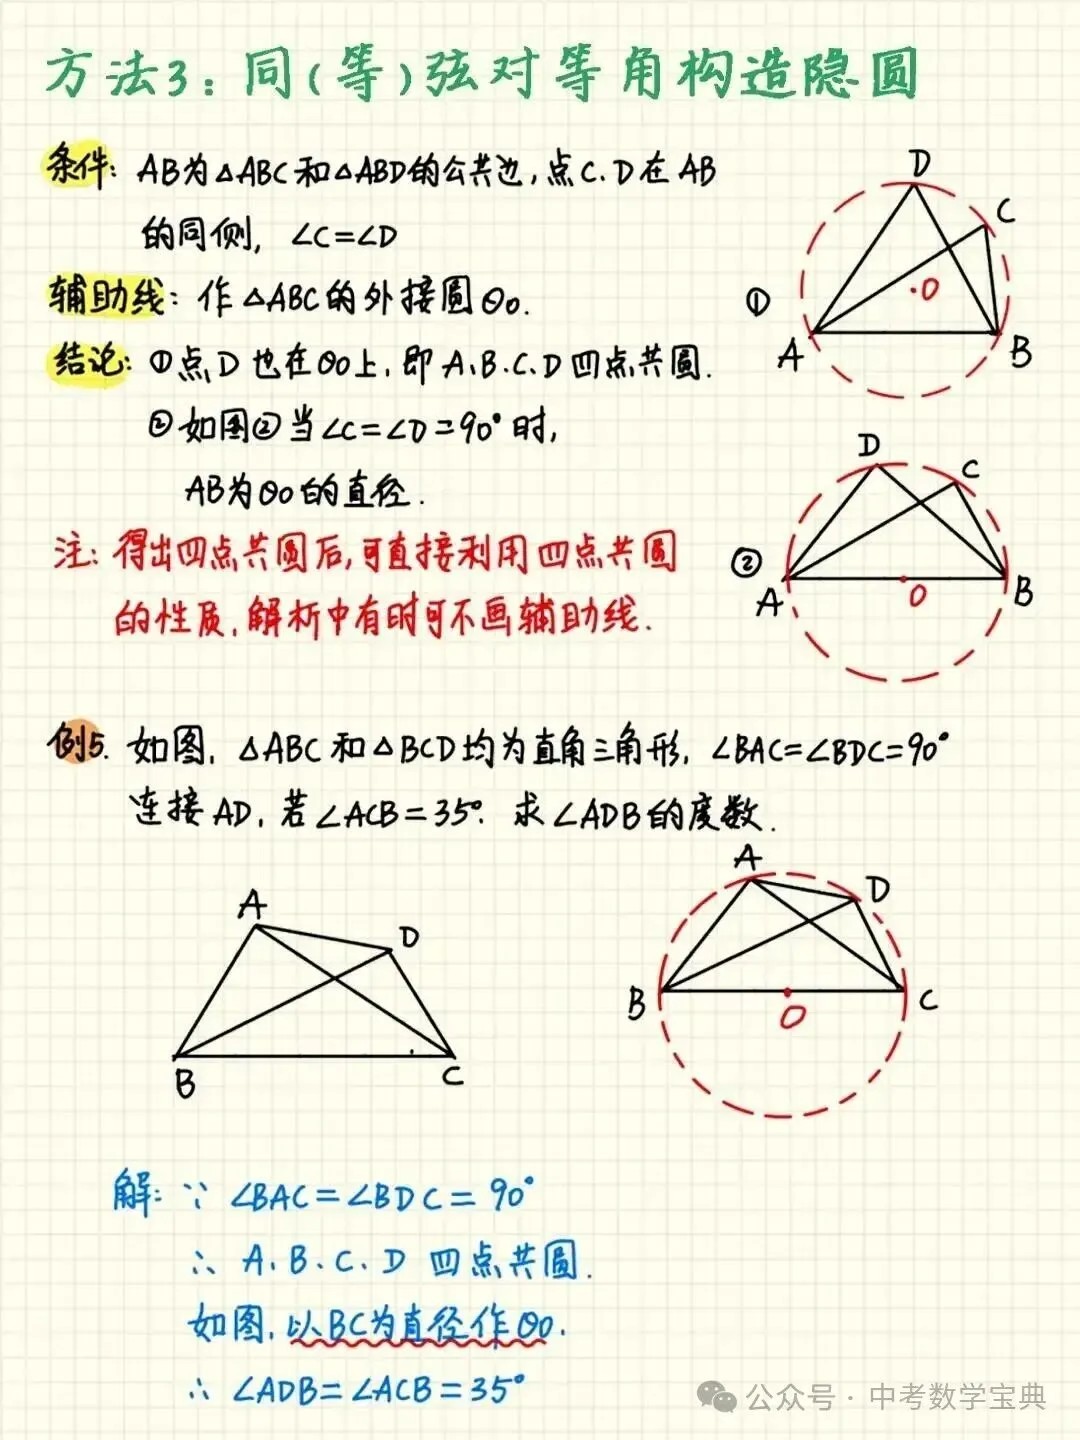 方法3：同(等)弦对等角构造隐圆
条件：AB为△ABC和△ABD的公共边，点C.D在AB
的同侧，∠C=∠D
辅助线：作△ABC的外接圆⊙O.
结论：①点D也在⊙O上，即A.B.C.D四点共圆.
②如图②当∠C=∠D=90°时，
AB为⊙O的直径.
注：得出四点共圆后，可直接利用四点共圆
的性质，解析中有时可不画辅助线.
①
D
C
O
A
B
②
D
C
A
O
B
例5. 如图，△ABC和△BCD均为直角三角形，∠BAC=∠BDC=90°
连接AD，若∠ACB=35°. 求∠ADB的度数.
A
D
B
C
A
D
B
O
C
解：∵ ∠BAC=∠BDC=90°
∴ A.B.C.D 四点共圆.
如图，以BC为直径作⊙O.
∴ ∠ADB=∠ACB=35°
公众号·中考数学宝典